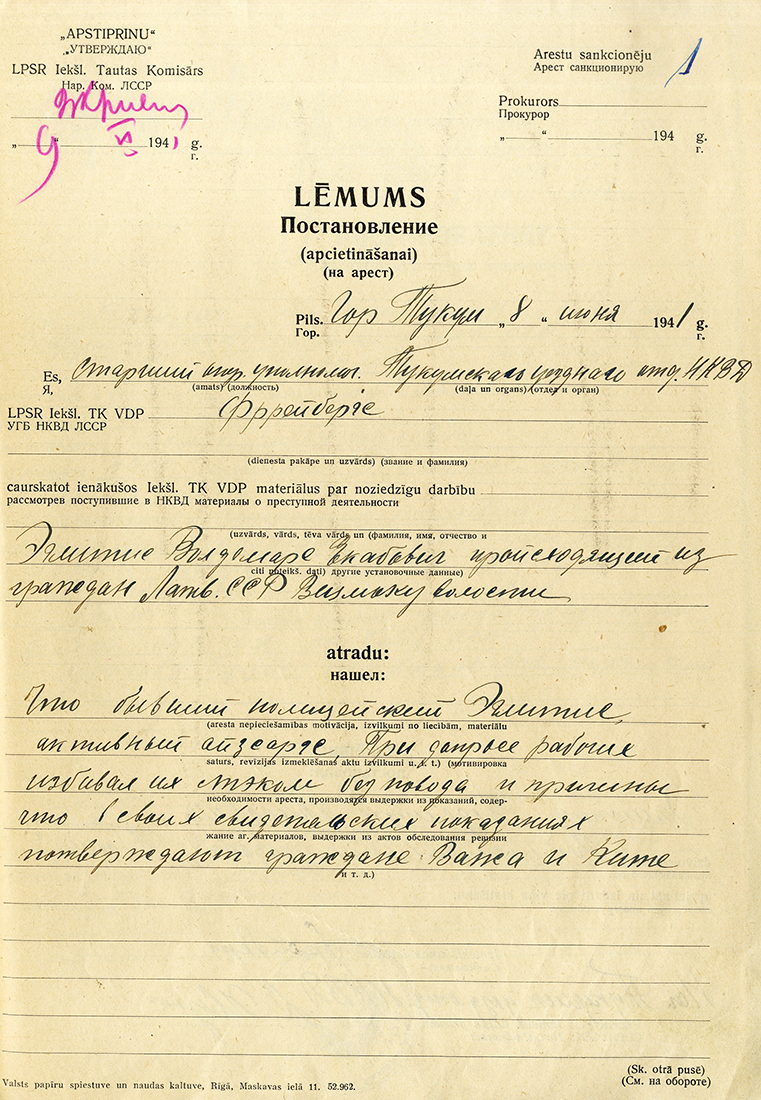 „APSTIPRINU“
„УТВЕРЖДАЮ“
LPSR Iekšl. Tautas Komisārs
Нар. Ком. ЛССР
„9“ VI 1941 g.
г.
1
Arestu sankcionēju
Арест санкционирую
Prokurors
Прокурор
„ “ 194 g.
г.
LĒMUMS
Постановление
(apcietināšanai)
(на арест)
Pils. Гор Тукум „8“ июня 1941 g.
Гор. г.
Es, старший опер. уполномоч. Тукумскаго уезднаго отд. НКВД
Я, (amats) (должность) (daļa un organs) (отдел и орган)
LPSR Iekšl. TK VDP Фррейбергс
УГБ НКВД ЛССР
(dienesta pakāpe un uzvārds) (звание и фамилия)
caurskatot ienākušos Iekšl. TK VDP materiālus par noziedzīgu darbību
рассмотрев поступившие в НКВД материалы о преступной деятельности
(uzvārds, vārds, tēva vārds un (фамилия, имя, отчество и
Волдемарс Екабович происходящей из
citi noteikš. dati) другие установочные данные)
граждан Латв. ССР волости
atradu:
нашел:
Что бывший полицейский
(aresta nepieciešamības motivācija, izvilkumi no liecībām, materiālu
активный айзсаргс. При допросе рабочих
saturs, revīzijas izmeklēšanas aktu izvilkumi u. t. t.) (мотивировка
избивал их без повода и причины
необходимости ареста, производятся выдержки из показаний, содер-
что в своих свидетельских показаниях
жание аг. материалов, выдержки из актов обследования ревизии
потверждают граждане Важа и Ките
и т. д.)
(Sk. otrā pusē)
(См. на обороте)
Valsts papīru spiestuve un naudas kaltuve, Rīgā, Maskavas ielā 11. 52.962.